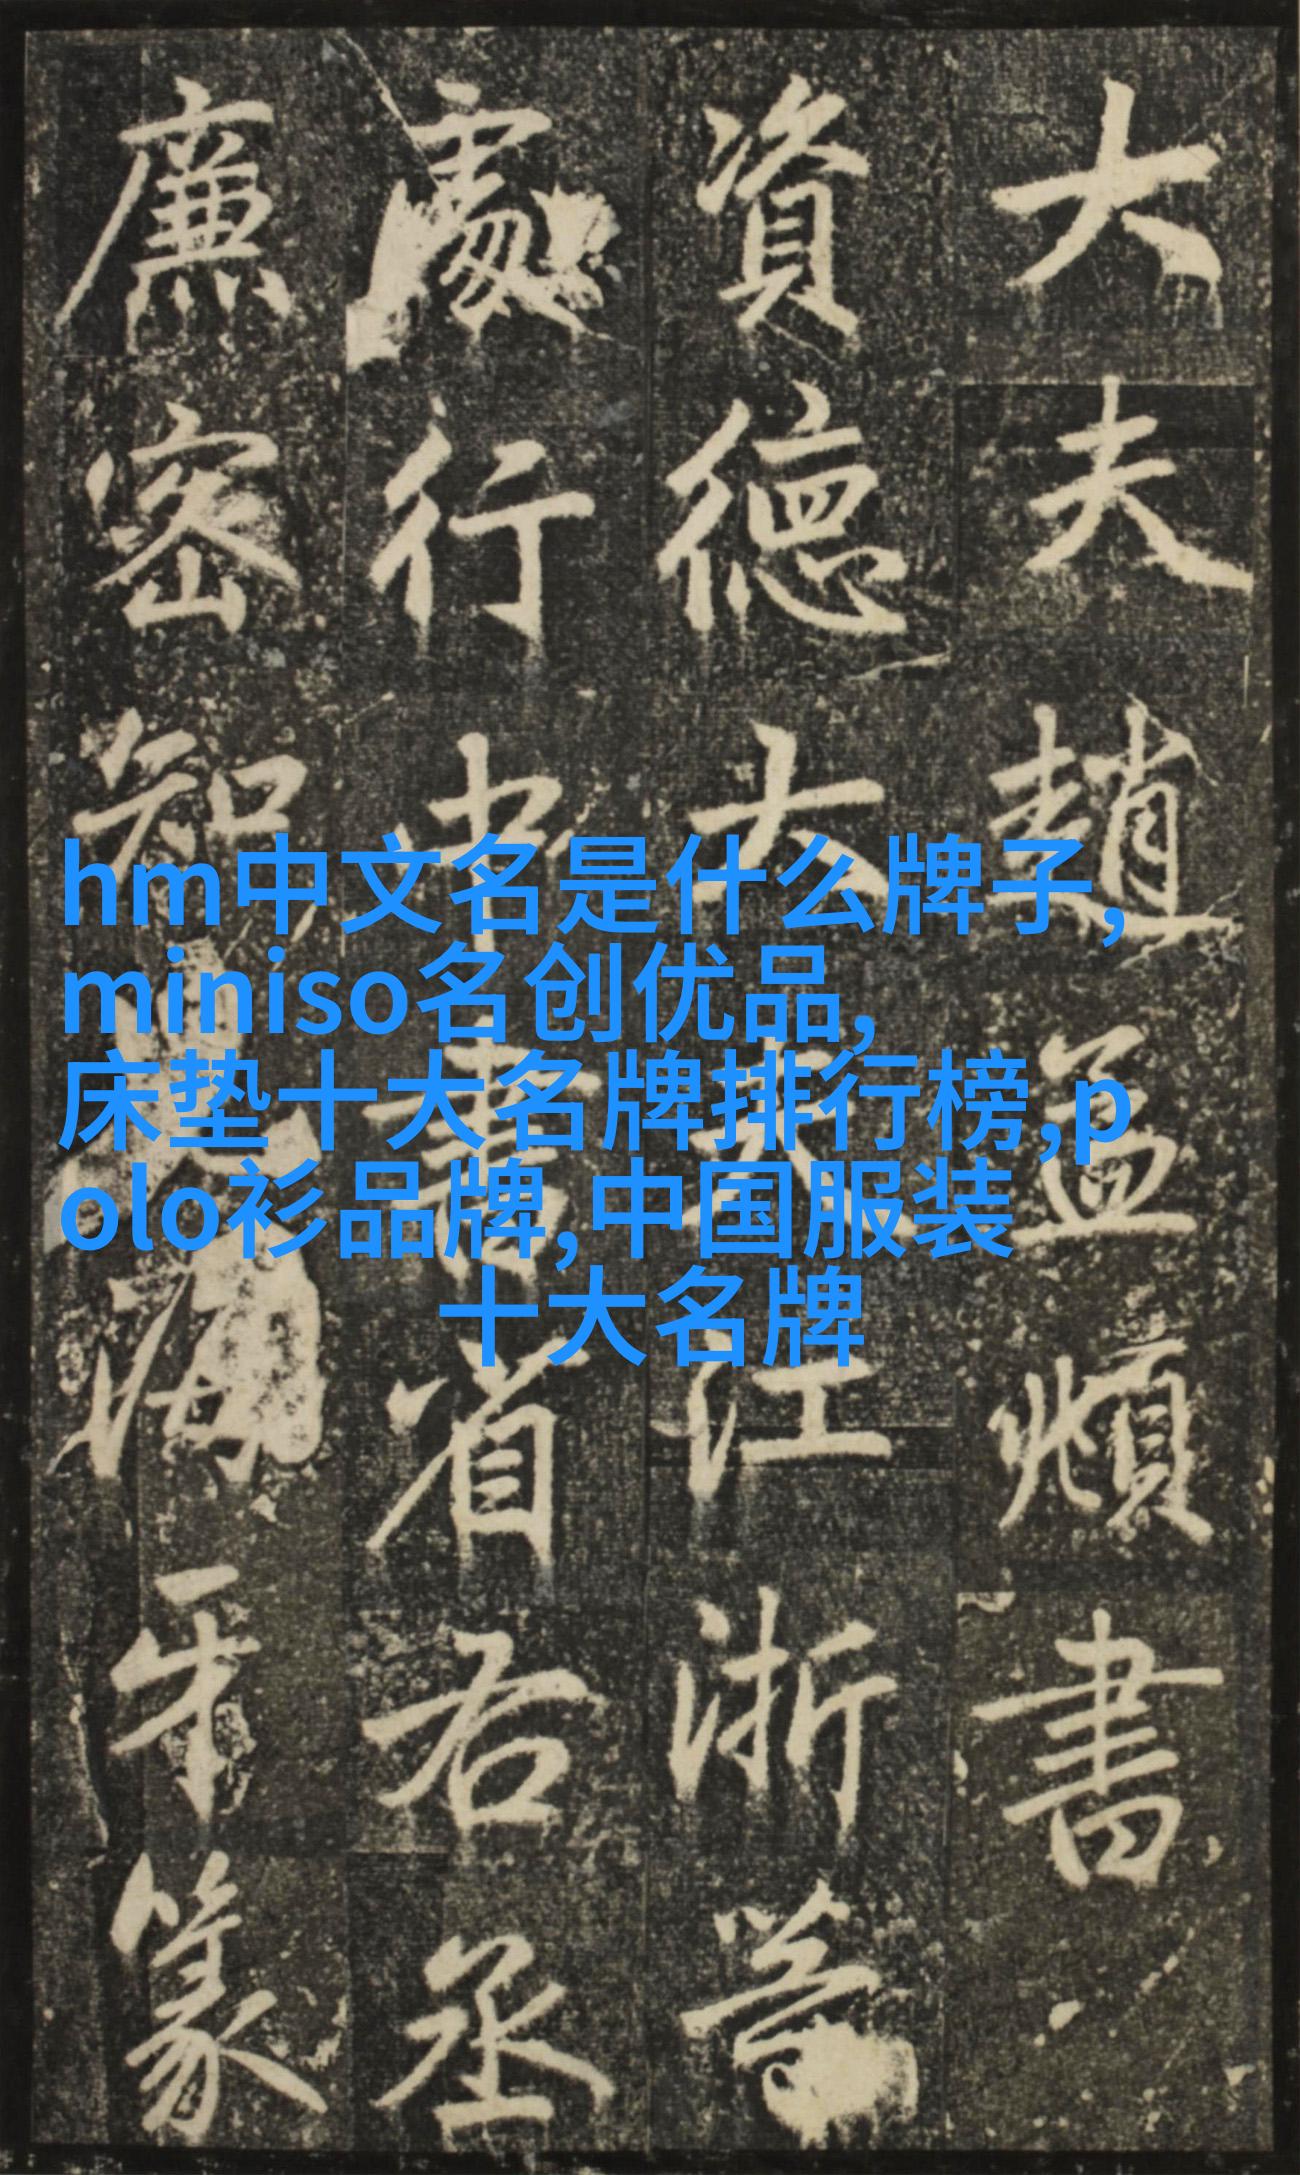 大夫趙孟頫書
資德大夫江浙等
處行中書省右丞
廉密知海牙篆
hm中文名是什么牌子,
miniso名创优品,
床垫十大名牌排行榜,p
olo衫品牌,中国服装
十大名牌